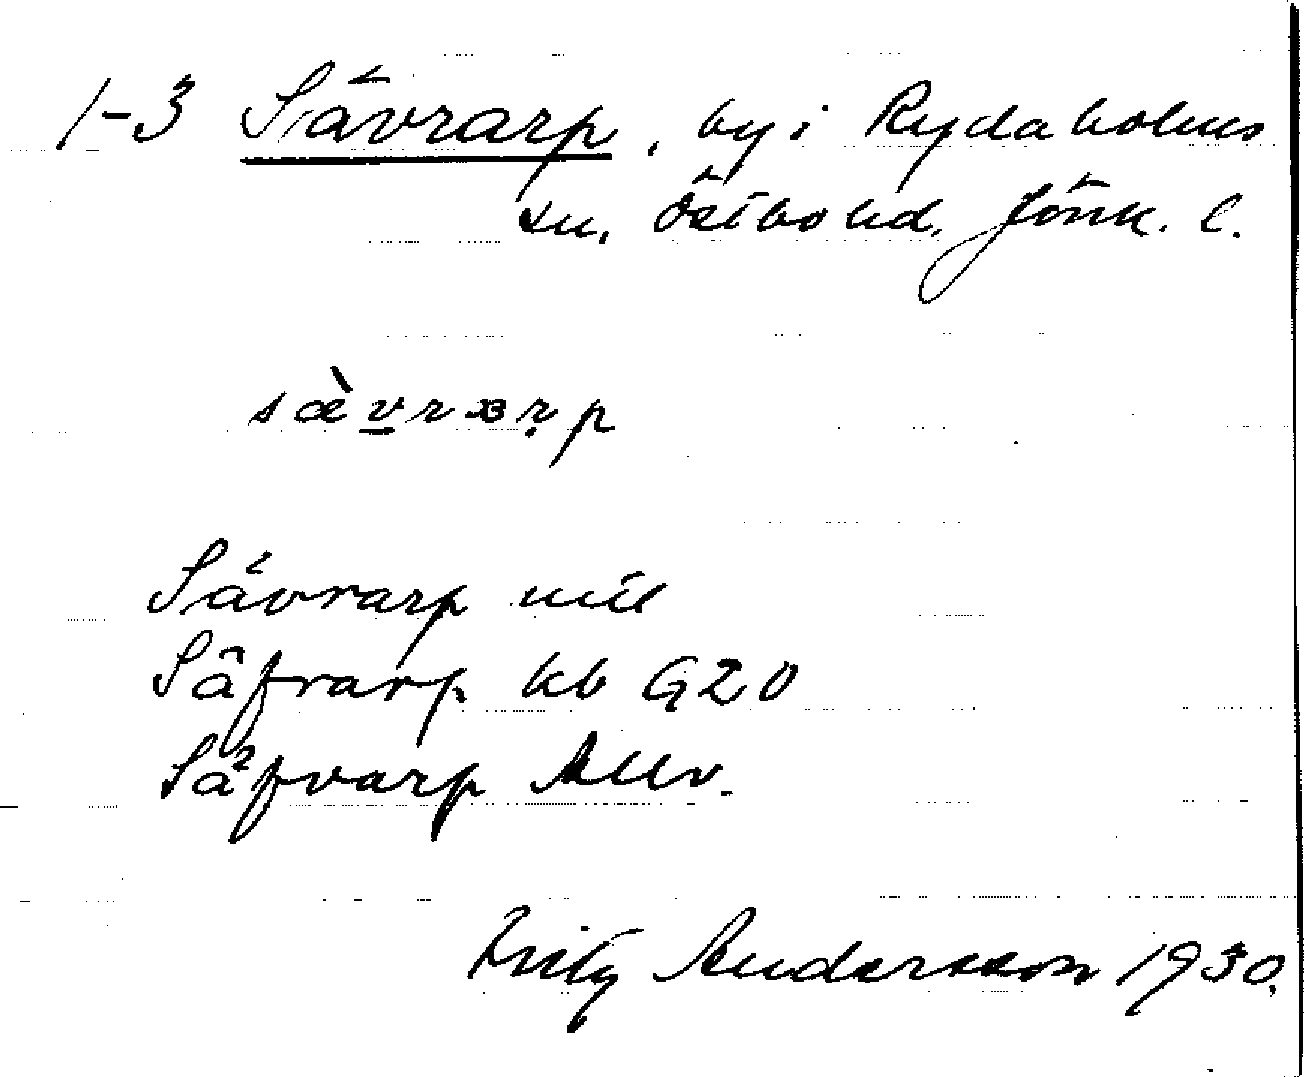 1-3 Sävrarp, by i Rydaholms
sn, Östbo hd, Jönk. l.
sæ̀vrarp
Sävrarp mtl
Säfrarp kb G20
Säfvarp Allv.
Fritz Andersson 1930.